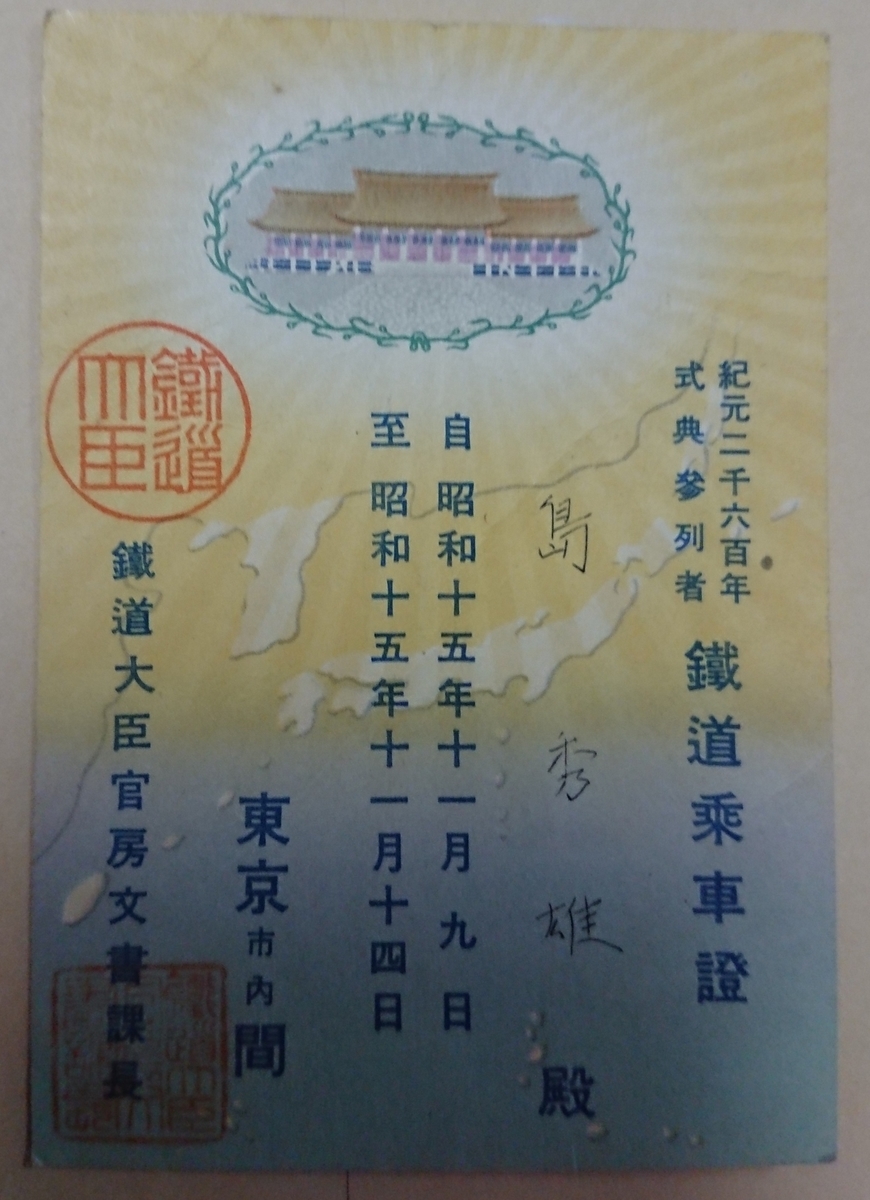 紀元二千六百年
式典參列者
鐵道乘車證
島秀雄殿
自昭和十五年十一月九日
至昭和十五年十一月十四日
東京市内間
鐵道大臣官房文書課長
鐵道
大臣